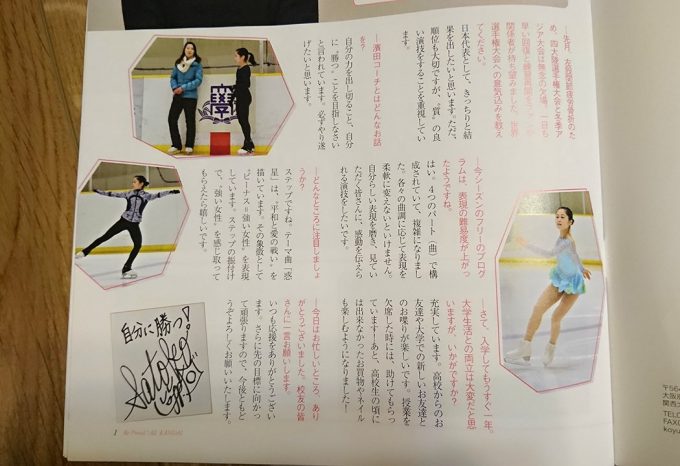 ――先月、左股関節疲労骨折のた
め、四大陸選手権大会と冬季ア
ジア大会は無念の欠場。一日も
早い回復と練習再開を
関係者が待ち望みました。世界
選手権大会への意気込みを教え
てください。
日本代表として、きっちりと結
果を出したいと思います。ただ、
順位も大切ですが、〝質〟の良
い演技をすることを重視してい
ます。
――濱田コーチとはどんなお話
を？
自分の力を出し切ること、自分
に〝勝つ〟ことを目指しなさい
と言われています。必ずやり遂
げたいと思います。
――今シーズンのフリーのプログ
ラムは、表現の難易度が上がっ
たようですね。
はい。４つのパート（曲）で構
成されていて、複雑になりまし
た。各々の曲調に応じて表現を
柔軟に変えないといけません。
自分らしい表現を磨き、見てい
ただく皆さんに、感動を伝えら
れる演技をしたいです。
――どんなところに注目しましょ
うか？
ステップですね。テーマ曲「惑
星」は、〝平和と愛の戦い〟を
描いています。その象徴として
〝ビーナス＝強い女性〟を表現
しています。ステップの振付け
で、〝強い女性〟を感じ取って
もらえたら嬉しいです。
――さて、入学してもうすぐ一年。
大学生活との両立は大変だと思
いますが、いかがですか？
充実しています。高校からのお
友達や大学での新しいお友達と
のお喋りが楽しいです。授業を
欠席した時には、助けてもらっ
ています！あと、高校生の頃に
は出来なかったお買物やネイル
も楽しむようになりました！
――今日はお忙しいところ、あり
がとうございました。校友の皆
さんに一言お願いします。
いつも応援をありがとうござい
ます。さらに先の目標に向かっ
て頑張りますので、今後ともど
うぞよろしくお願いいたします。
自分に勝つ！
Satoko
1 Be Proud! We KANDAI
〒564
大阪府
関西大
TEL
FAX
koyu